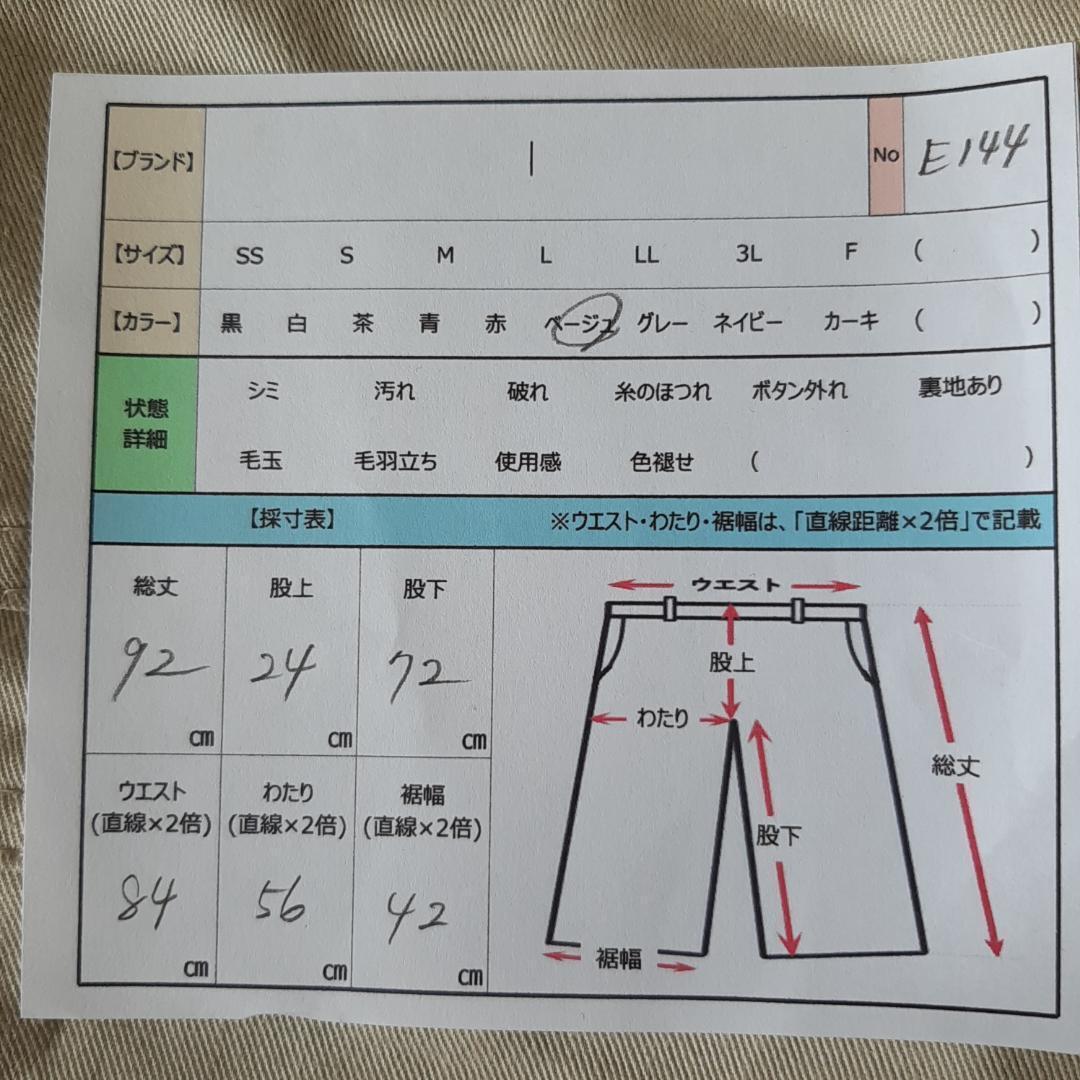 【ブランド】 | No E144
【サイズ】 SS S M L LL 3L F ( )
【カラー】 黒 白 茶 青 赤 ベージュ グレー ネイビー カーキ ( )
状態
詳細
シミ 汚れ 破れ 糸のほつれ ボタン外れ 裏地あり
毛玉 毛羽立ち 使用感 色褪せ ( )
【採寸表】 ※ウエスト・わたり・裾幅は、「直線距離×2倍」で記載
総丈 股上 股下
92 24 72
cm cm cm
ウエスト わたり 裾幅
(直線×2倍) (直線×2倍) (直線×2倍)
84 56 42
cm cm cm
ウエスト
股上
わたり
総丈
股下
裾幅